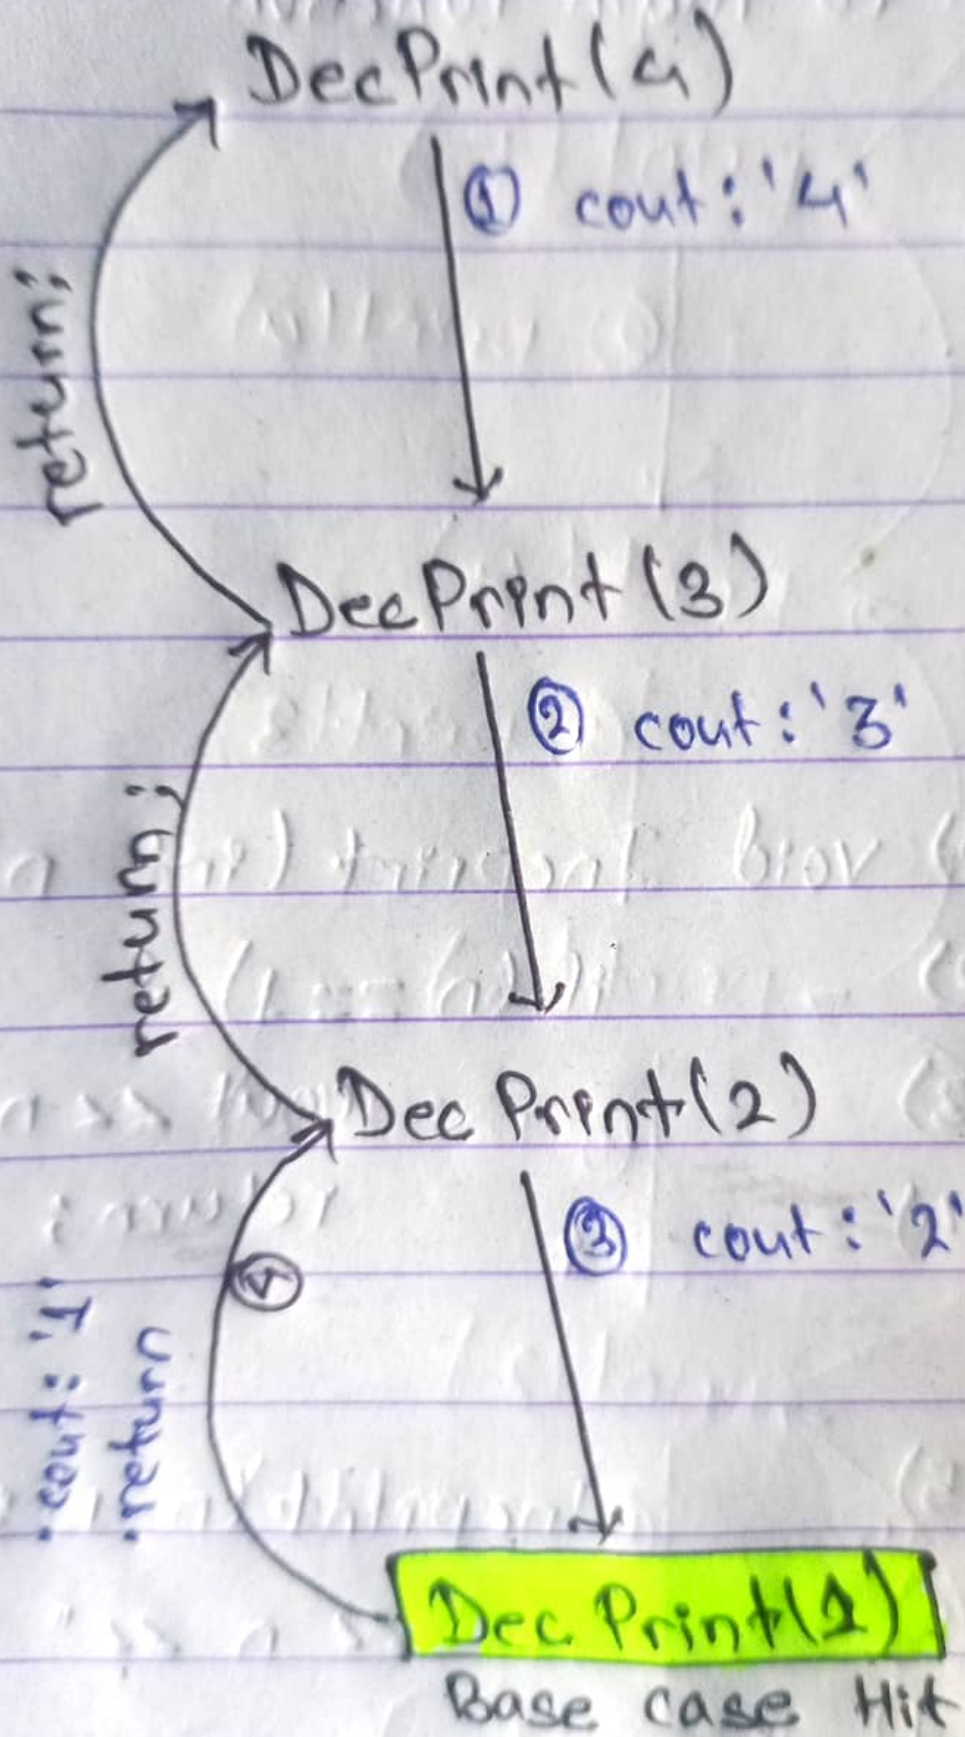 DecPrint(4)
① cout : '4'
return;
DecPrint(3)
② cout : '3'
return;
Dec Print(2)
③ cout : '2'
④
• cout : '1'
• return
Dec Print(1)
Base case Hit